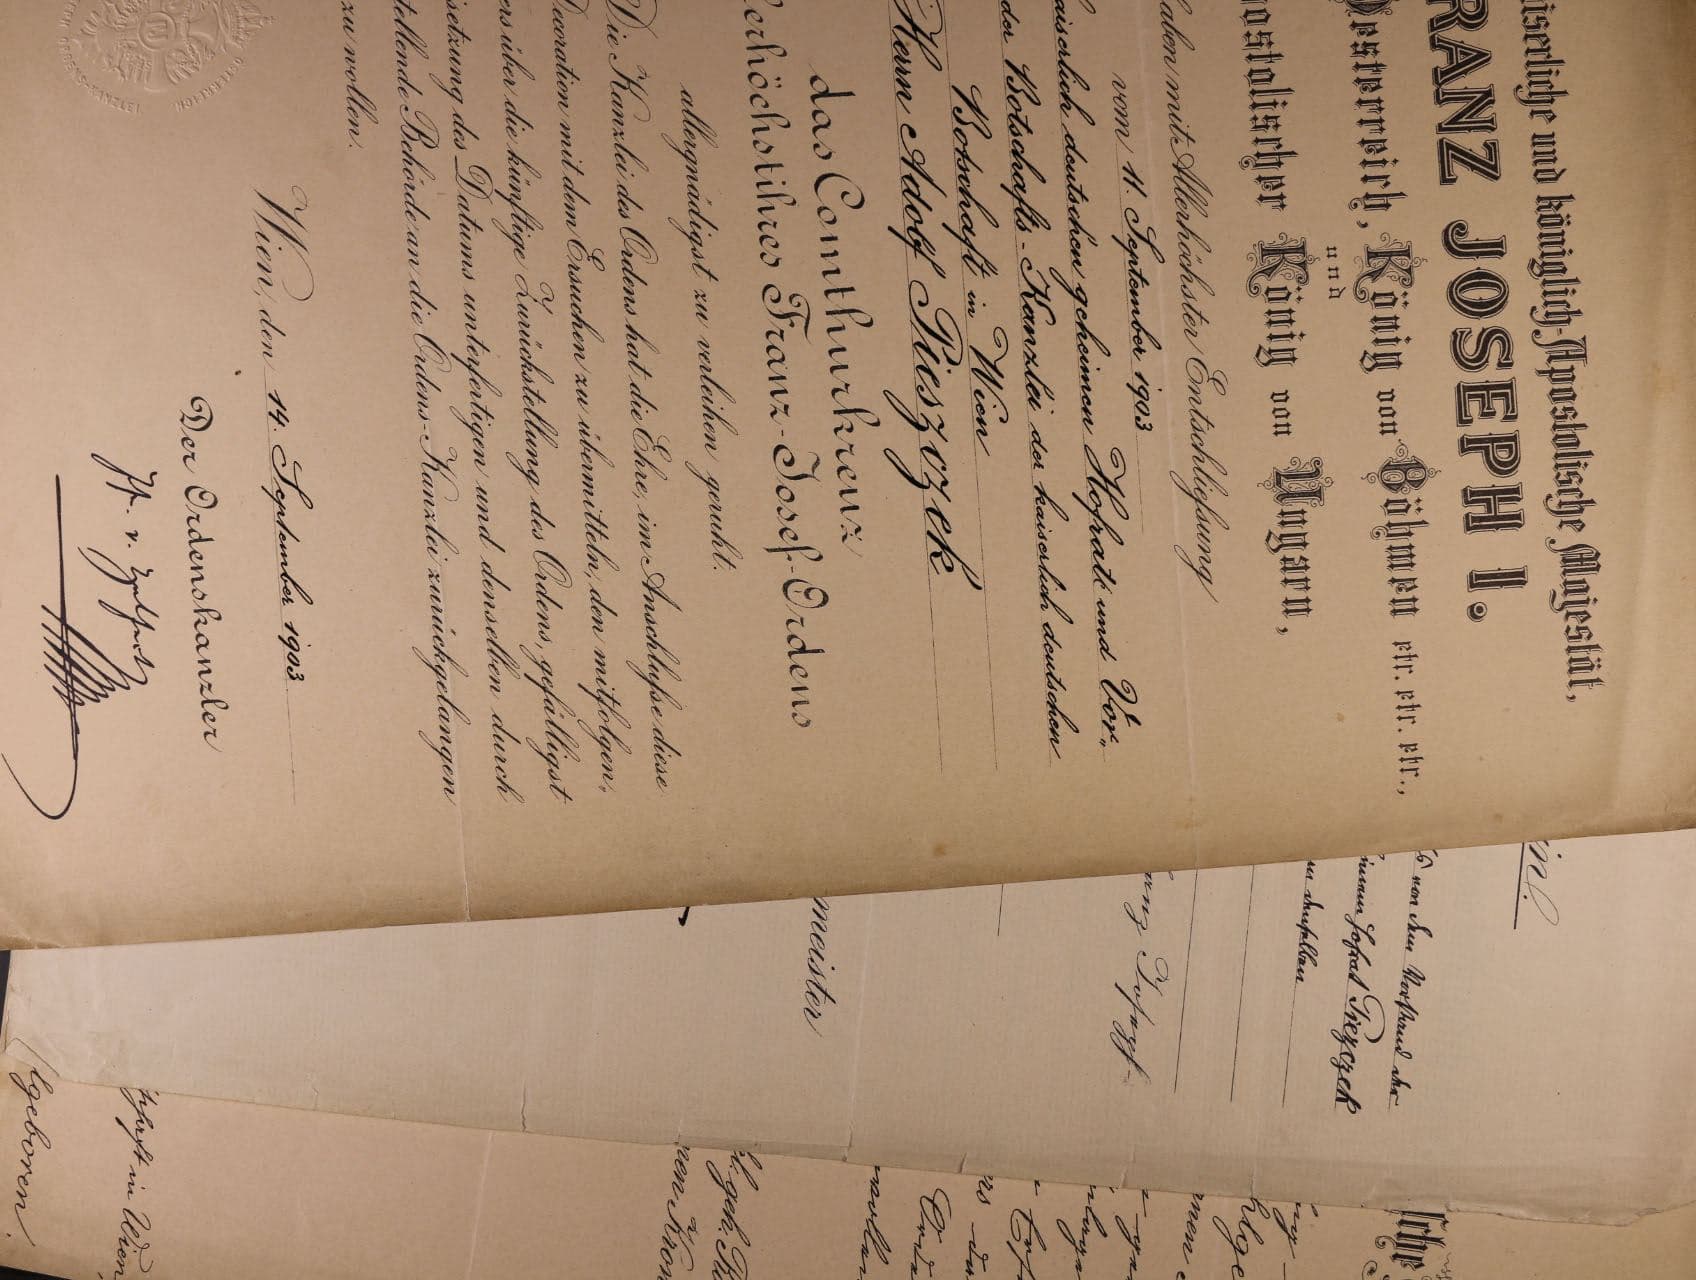 iserliche und königlich-Apostolische Majestät,
RANZ JOSEPH I.
Oesterreich, König von Böhmen etc. etc. etc.,
und
ostolischer König von Ungarn,
aben mit Allerhöchster Entschließung
vom 11. September 1903
aiserlich deutschen geheimen Hofrath und Vor-
der Botschafts-Kanzlei der kaiserlich deutschen
Botschaft in Wien
Herrn Adolf Pieszczek
das Comthurkreuz
erhöchstihres Franz-Josef-Ordens
allergnädigst zu verleihen geruht.
Die Kanzlei des Ordens hat die Ehre, im Anschluße diese
Decoration mit dem Ersuchen zu übermitteln, den mitfolgen,
ers über die künftige Zurückstellung des Ordens, gefälligst
setzung des Datums unterfertigen und denselben durch
tellende Behörde an die Ordens-Kanzlei zurückgelangen
zu wollen.
Wien, den 14. September 1903
Der Ordenskanzler
ORDENS-KANZLEI
von dem Vorstand der
Hofrat Pieszczek
in denselben
meister
schaft in Wien
lgeboren